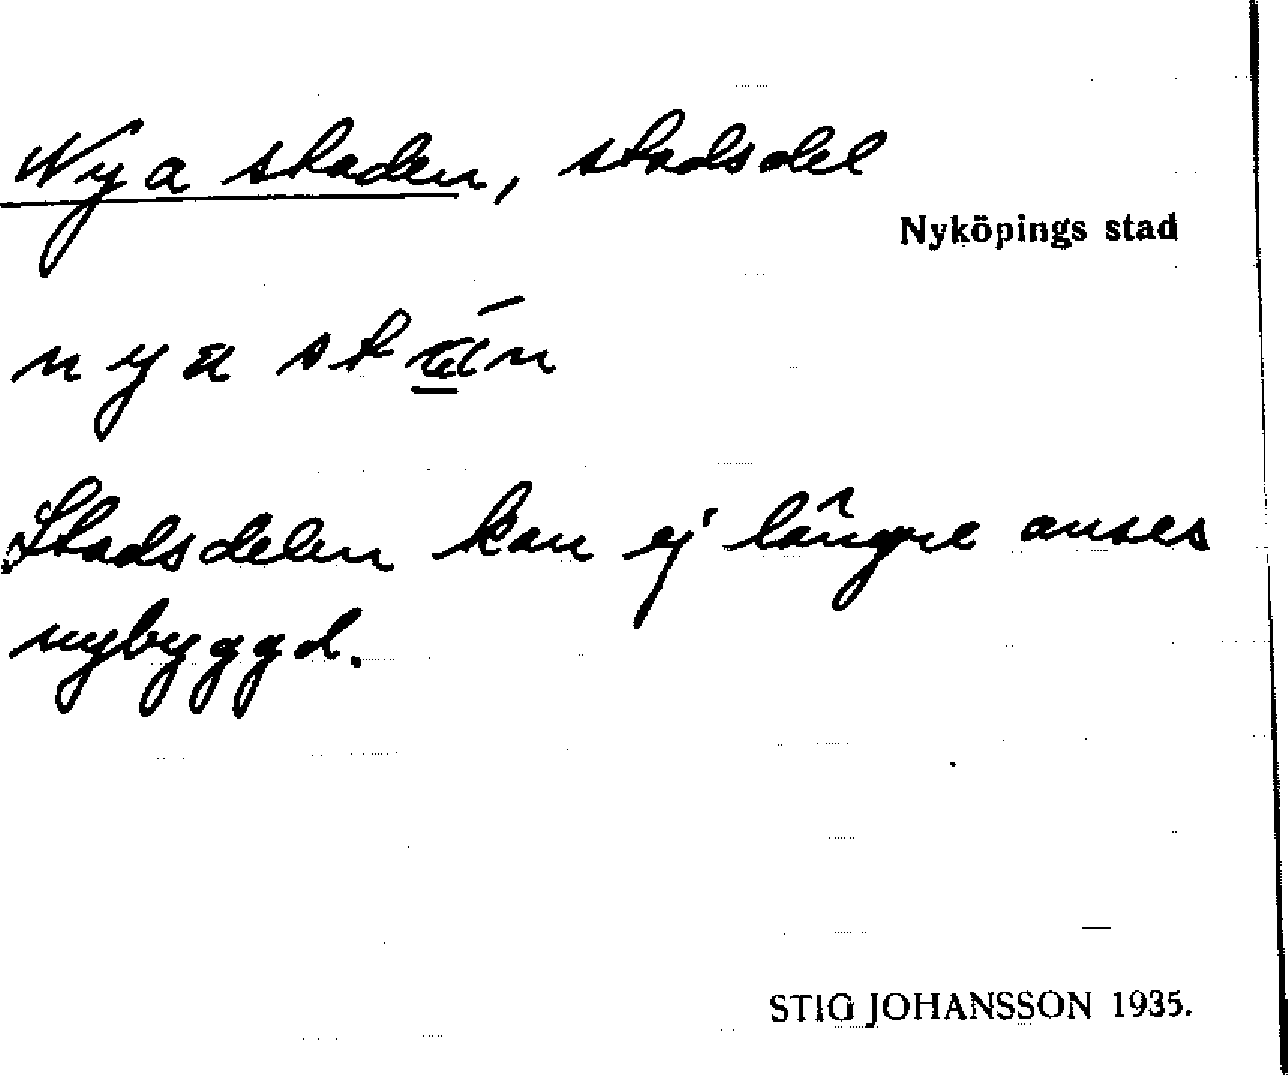 Nya staden, stadsdel
Nyköpings stad
nya
Stadsdelen kan ej längre anses
nybyggd.
STIG JOHANSSON 1935.